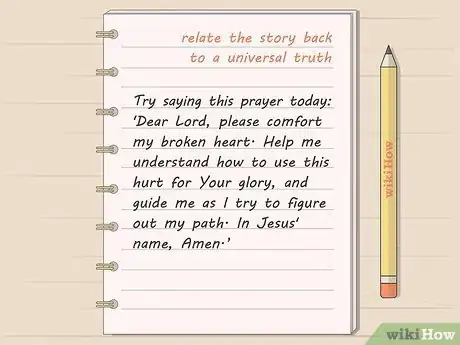 relate the story back
to a universal truth
Try saying this prayer today:
'Dear Lord, please comfort
my broken heart. Help me
understand how to use this
hurt for Your glory, and
guide me as I try to figure
out my path. In Jesus'
name, Amen.'
wikiHow
wikiHow